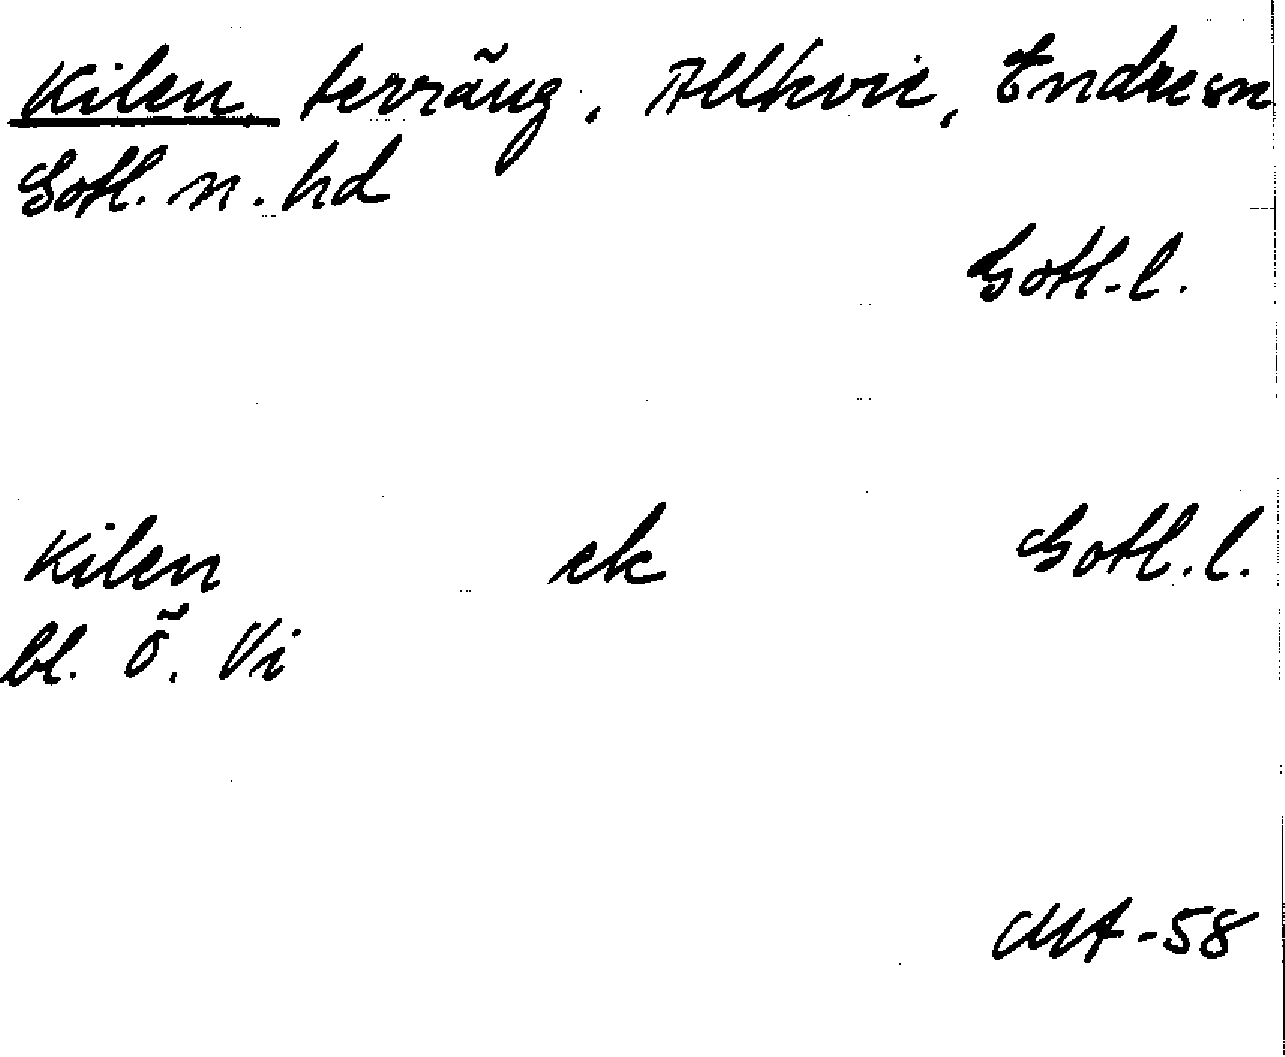 Kilen, terräng, Allkvie, Endre sn
Gotl. n. hd
Gotl. l.
Kilen ek Gotl. l.
bl. Ö. Vi
MA-58